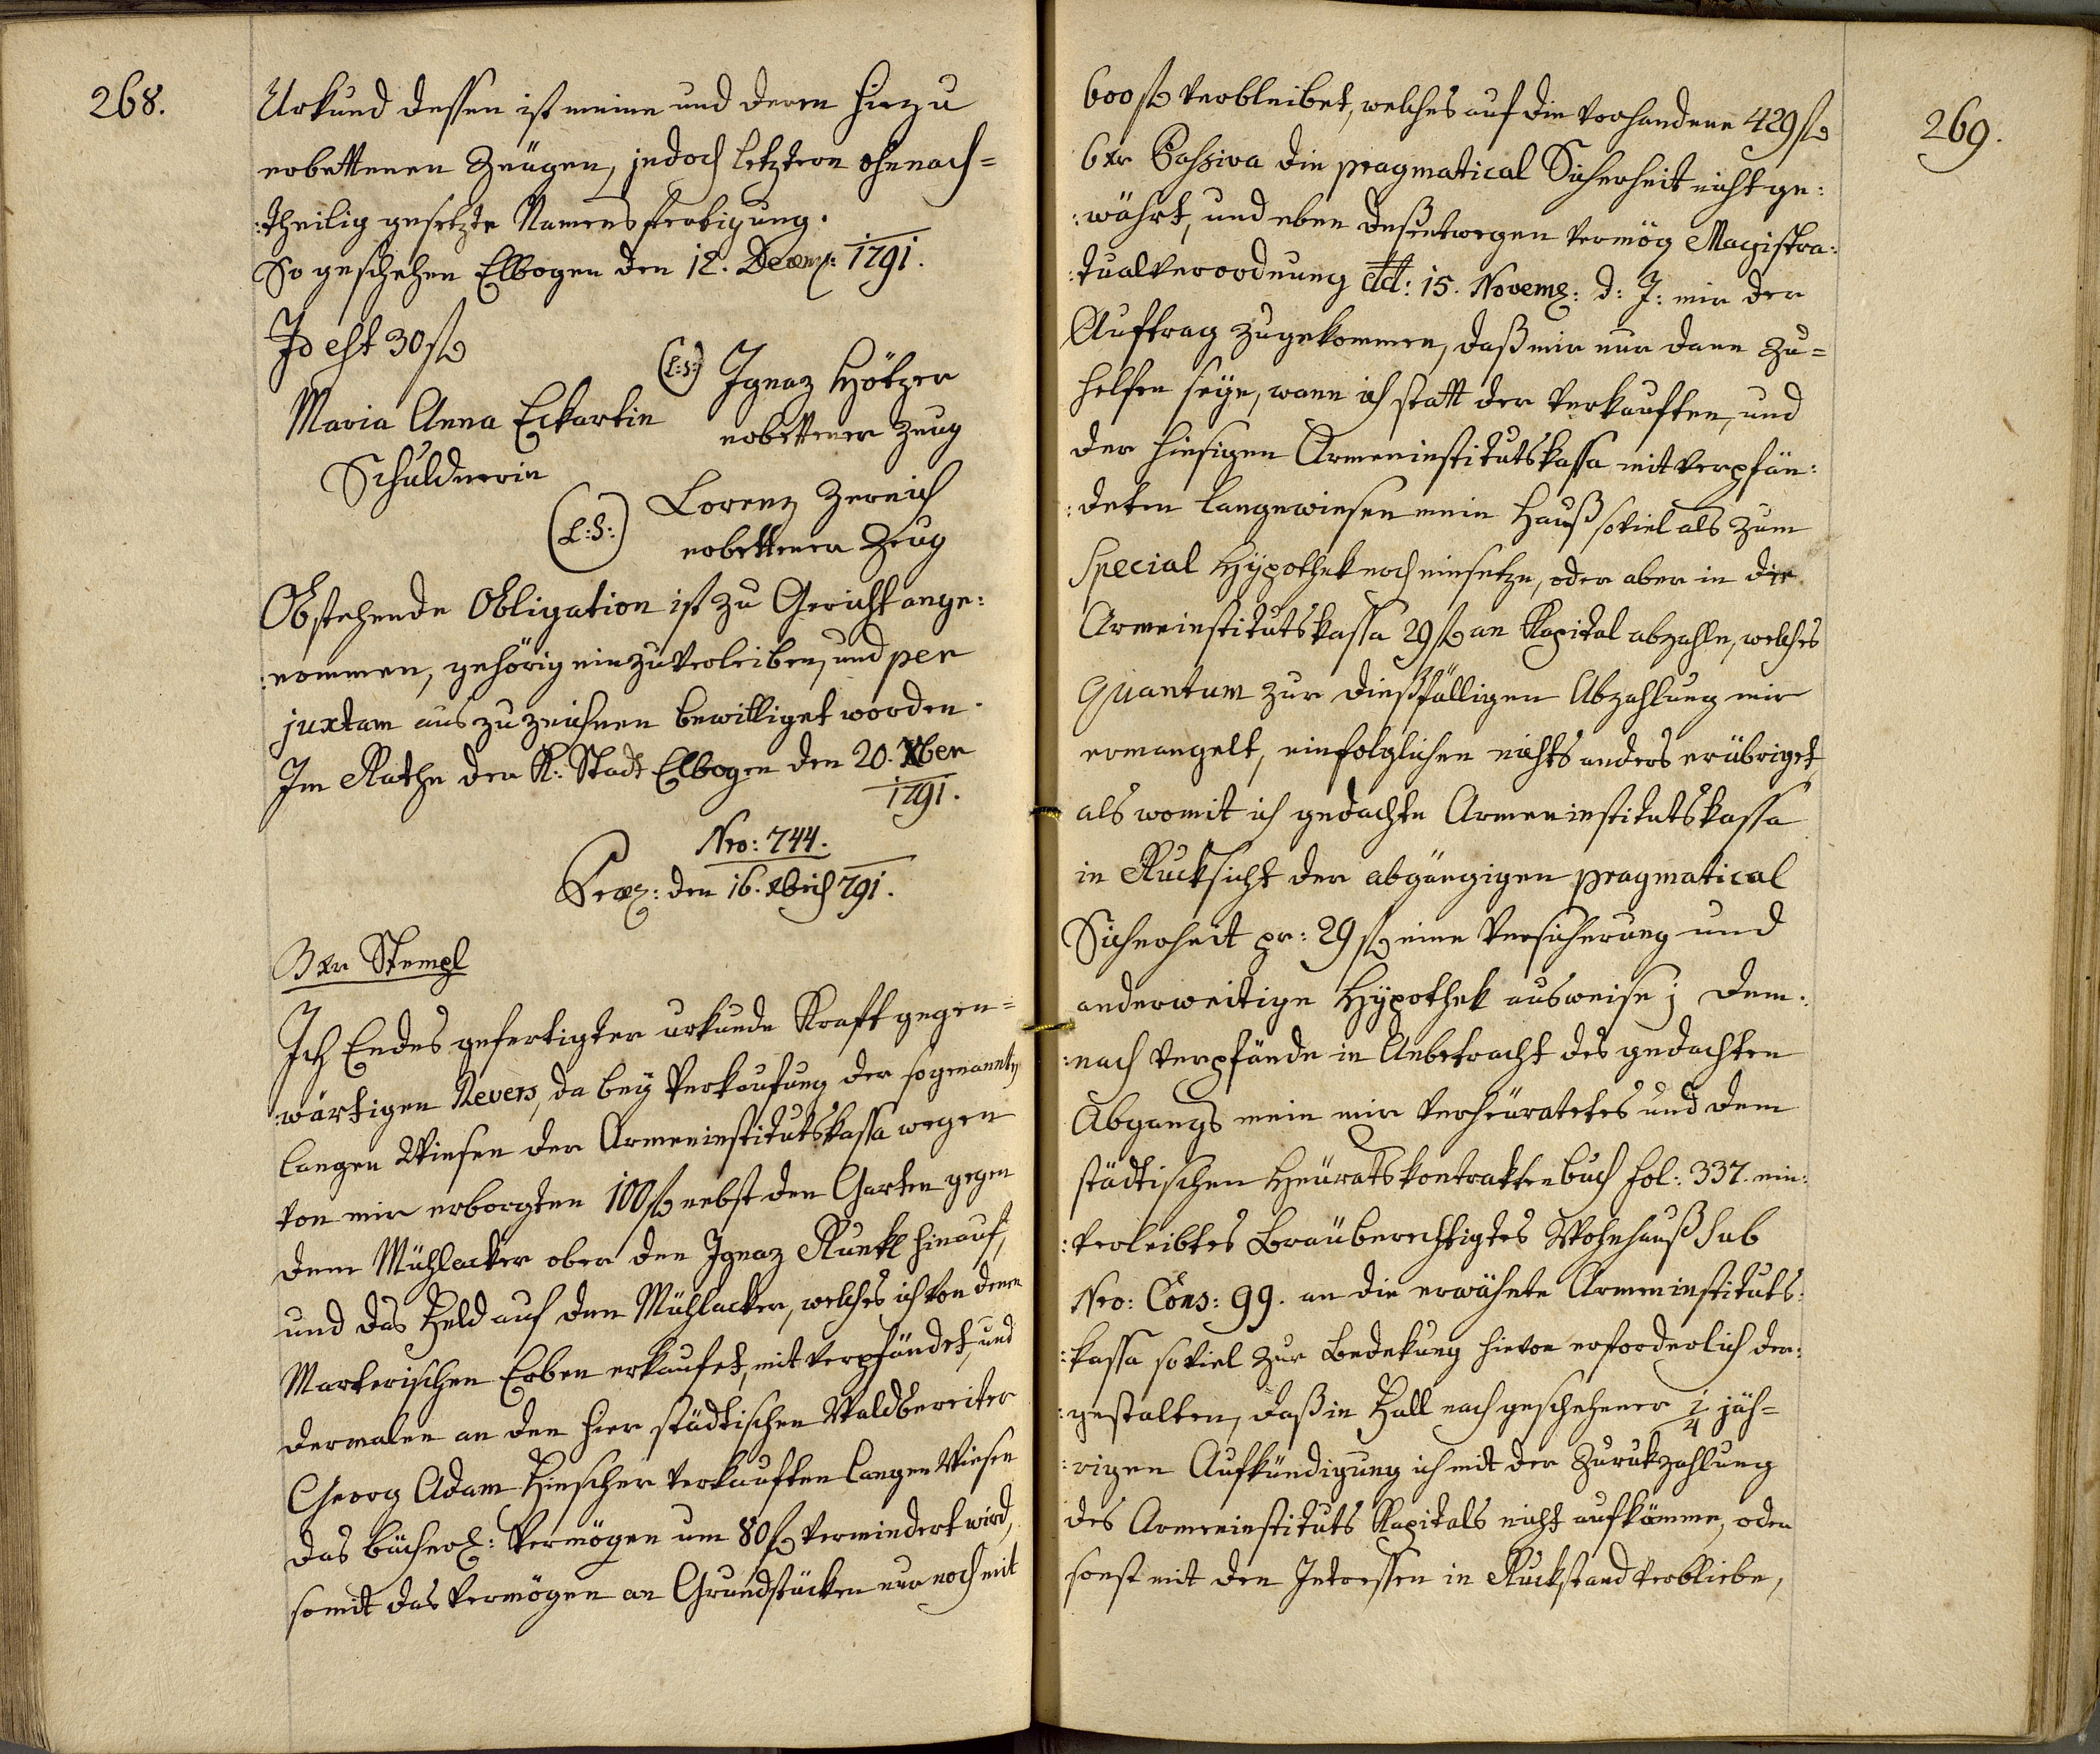 268.
Urkund dessen ist meine und deren hinzu
erbettenen Zeügen, jedoch letztern ohnnach=
:theilig gesetzte Namensfertigung.
So geschehen Elbogen den 12. Decemb: 1791.
Id est 30 fl
(L:S:) Ignaz Hötzer
Maria Anna Eckartin erbettener Zeug
Schuldnerin
(L:S:) Lorenz Zernich
erbettener Zeug
Obstehende Obligation ist zu Gericht ange:
:nommen, gehörig einzuverleiben, und per
juxtam auszuzeichnen bewilliget worden.
Im Rathe der K: Stadt Elbogen den 20. Xber
1791.
Nro: 744.
Praes: den 16. Xbris 791.
3 xr Stempl
Ich Endes gefertigter urkunde Kraft gegen=
:wärtigen Revers, da bey Verkaufung der sogenannten
langen Wiesen der Armeninstitutskassa wegen
von mir erborgten 100 fl nebst den Garten gegen
dem Mühlacker ober den Ignaz Runkl hinauf,
und das Feld auf den Mühlacker, welches ich von denen
Marterischen Erben erkaufet, mit verpfändet, und
dermalen an den hier städtischen Waldbereiter
Georg Adam Hirscher verkauften langen Wiesen
das bücherl: Vermögen um 80 fl vermindert wird,
somit das Vermögen an Grundstücken nur noch mit
269.
600 fl verbleibet, welches auf die vorhandene 429 fl
6 xr Passiva die pragmatical Sicherheit nicht ge:
:währt, und eben deßentwegen vermög Magistra:
:tualverordnung dd: 15. Novemb: d: J: mir der
Auftrag zugekommen, daß mir nur dann zu=
helfen seye, wann ich statt der verkauften, und
der hiesigen Armeninstitutskassa mitverpfän:
:deten langewiesen mein Hauß soviel als zum
Special Hypothek noch einsetze, oder aber in die
Armeinstitutskassa 29 fl an Kapital abzahle, welches
Quantum zur dießfälligen Abzahlung mir
ermangelt, einfolglichen nichts anders erübriget,
als womit ich gedachte Armeninstitutskassa
in Rucksicht der abgängigen pragmatical
Sicherheit pr: 29 fl eine Versicherung und
anderweitige Hypothek ausweise; dem:
:nach verpfände in Anbetracht des gedachten
Abgangs mein mir verheüratetes und dem
städtischen Heüratskontraktenbuch fol: 337. ein:
:verleibtes Bräuberechtigtes Wohnhauß sub
Nro: Cons: 99. an die erwähnte Armeninstituts:
:kassa soviel zur Bedekung hievon erforderlich der:
:gestalten, daß in Fall nach geschehener 1/4 jäh=
:rigen Aufkündigung ich mit der Zurukzahlung
des Armeninstituts Kapitals nicht aufkömme, oder
sonst mit den Intressen in Ruckstand verbliebe,